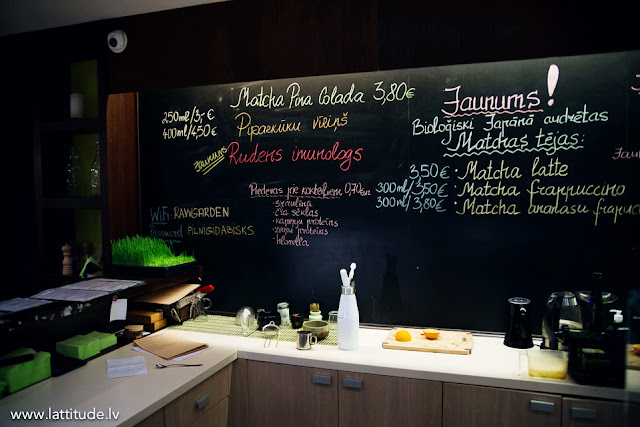 250ml/3,-€
400ml/4,50€
Matcha Pina Colada 3,80€
Piparkūku vīriņš
Jaunums
Rudens imunologs
Piedevas pie kokteiļiem 0,70
- spirulīna
- čia sēklas
- kaņepju proteīns
- zirņu proteīns
- hlorella
WiFi: RAWGARDEN
Password: PILNIGIDABISKS
Jaunums!
Bioloģiski Japānā audzētas
Matchas tējas:
3,50€ · Matcha latte
300ml/3,50€ · Matcha frappuccino
300ml/3,80€ · Matcha ananasu frapuc
www.lattitude.lv